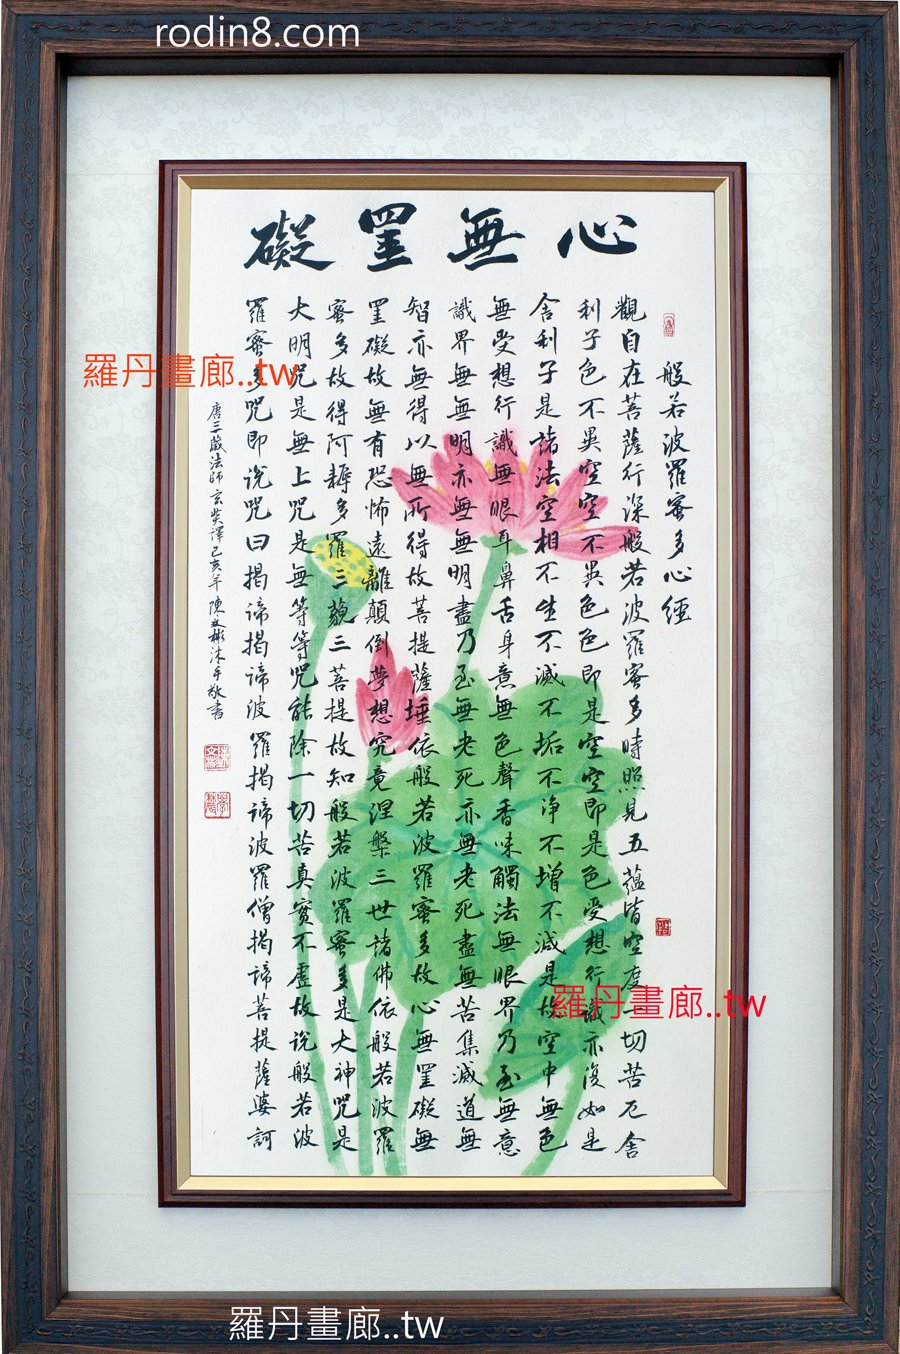 rodin8.com
心無罣礙
般若波羅蜜多心經
觀自在菩薩行深般若波羅蜜多時照見五蘊皆空度一切苦厄舍
利子色不異空空不異色色即是空空即是色受想行識亦復如是
舍利子是諸法空相不生不滅不垢不淨不增不減是故空中無色
無受想行識無眼耳鼻舌身意無色聲香味觸法無眼界乃至無意
識界無無明亦無無明盡乃至無老死亦無老死盡無苦集滅道無
智亦無得以無所得故菩提薩埵依般若波羅蜜多故心無罣礙無
罣礙故無有恐怖遠離顛倒夢想究竟涅槃三世諸佛依般若波羅
蜜多故得阿耨多羅三藐三菩提故知般若波羅蜜多是大神咒是
大明咒是無上咒是無等等咒能除一切苦真實不虛故說般若波
羅蜜多咒即說咒曰揭諦揭諦波羅揭諦波羅僧揭諦菩提薩婆訶
唐三藏法師玄奘譯己亥年陳文彬沐手敬書
羅丹畫廊..tw
羅丹畫廊..tw
羅丹畫廊..tw